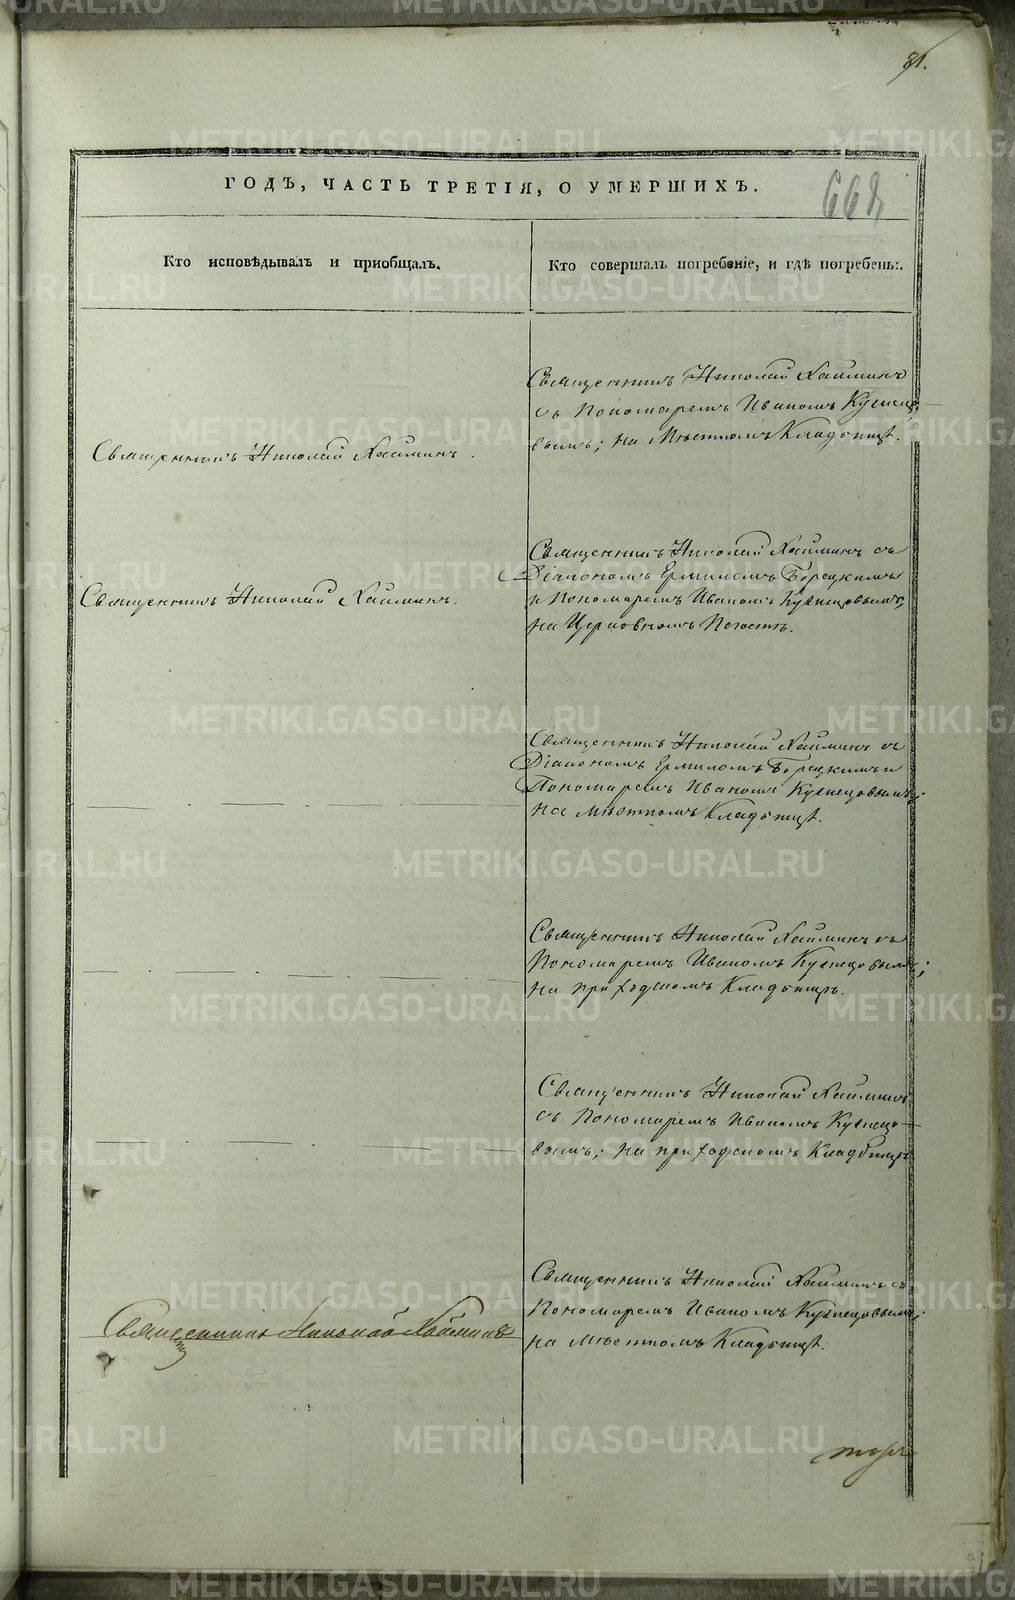 81.
ГОДЪ, ЧАСТЬ ТРЕТІЯ, О УМЕРШИХЪ.
668
Кто исповѣдывалъ и пріобщалъ.
Кто совершалъ погребеніе, и гдѣ погребены.
Священникъ Николай Хайминъ.
Священникъ Николай Хайминъ
съ Пономаремъ Иваномъ Кузнецо-
вымъ; на Мѣстномъ Кладбищѣ.
Священникъ Николай Хайминъ.
Священникъ Николай Хайминъ съ
Діакономъ Ермиломъ Борецкимъ
и Пономаремъ Иваномъ Кузнецовымъ;
на Церковномъ Погостѣ.
Священникъ Николай Хайминъ съ
Діакономъ Ермиломъ Борецкимъ и
Пономаремъ Иваномъ Кузнецовымъ;
на мѣстномъ Кладбищѣ.
Священникъ Николай Хайминъ съ
Пономаремъ Иваномъ Кузнецовымъ;
на приходскомъ Кладбищѣ.
Священникъ Николай Хайминъ
съ Пономаремъ Иваномъ Кузнецо-
вымъ; на приходскомъ Кладбищѣ
Священникъ Николай Хайминъ
Священникъ Николай Хайминъ съ
Пономаремъ Иваномъ Кузнецовымъ;
на мѣстномъ Кладбищѣ.
METRIKI.GASO-URAL.RU